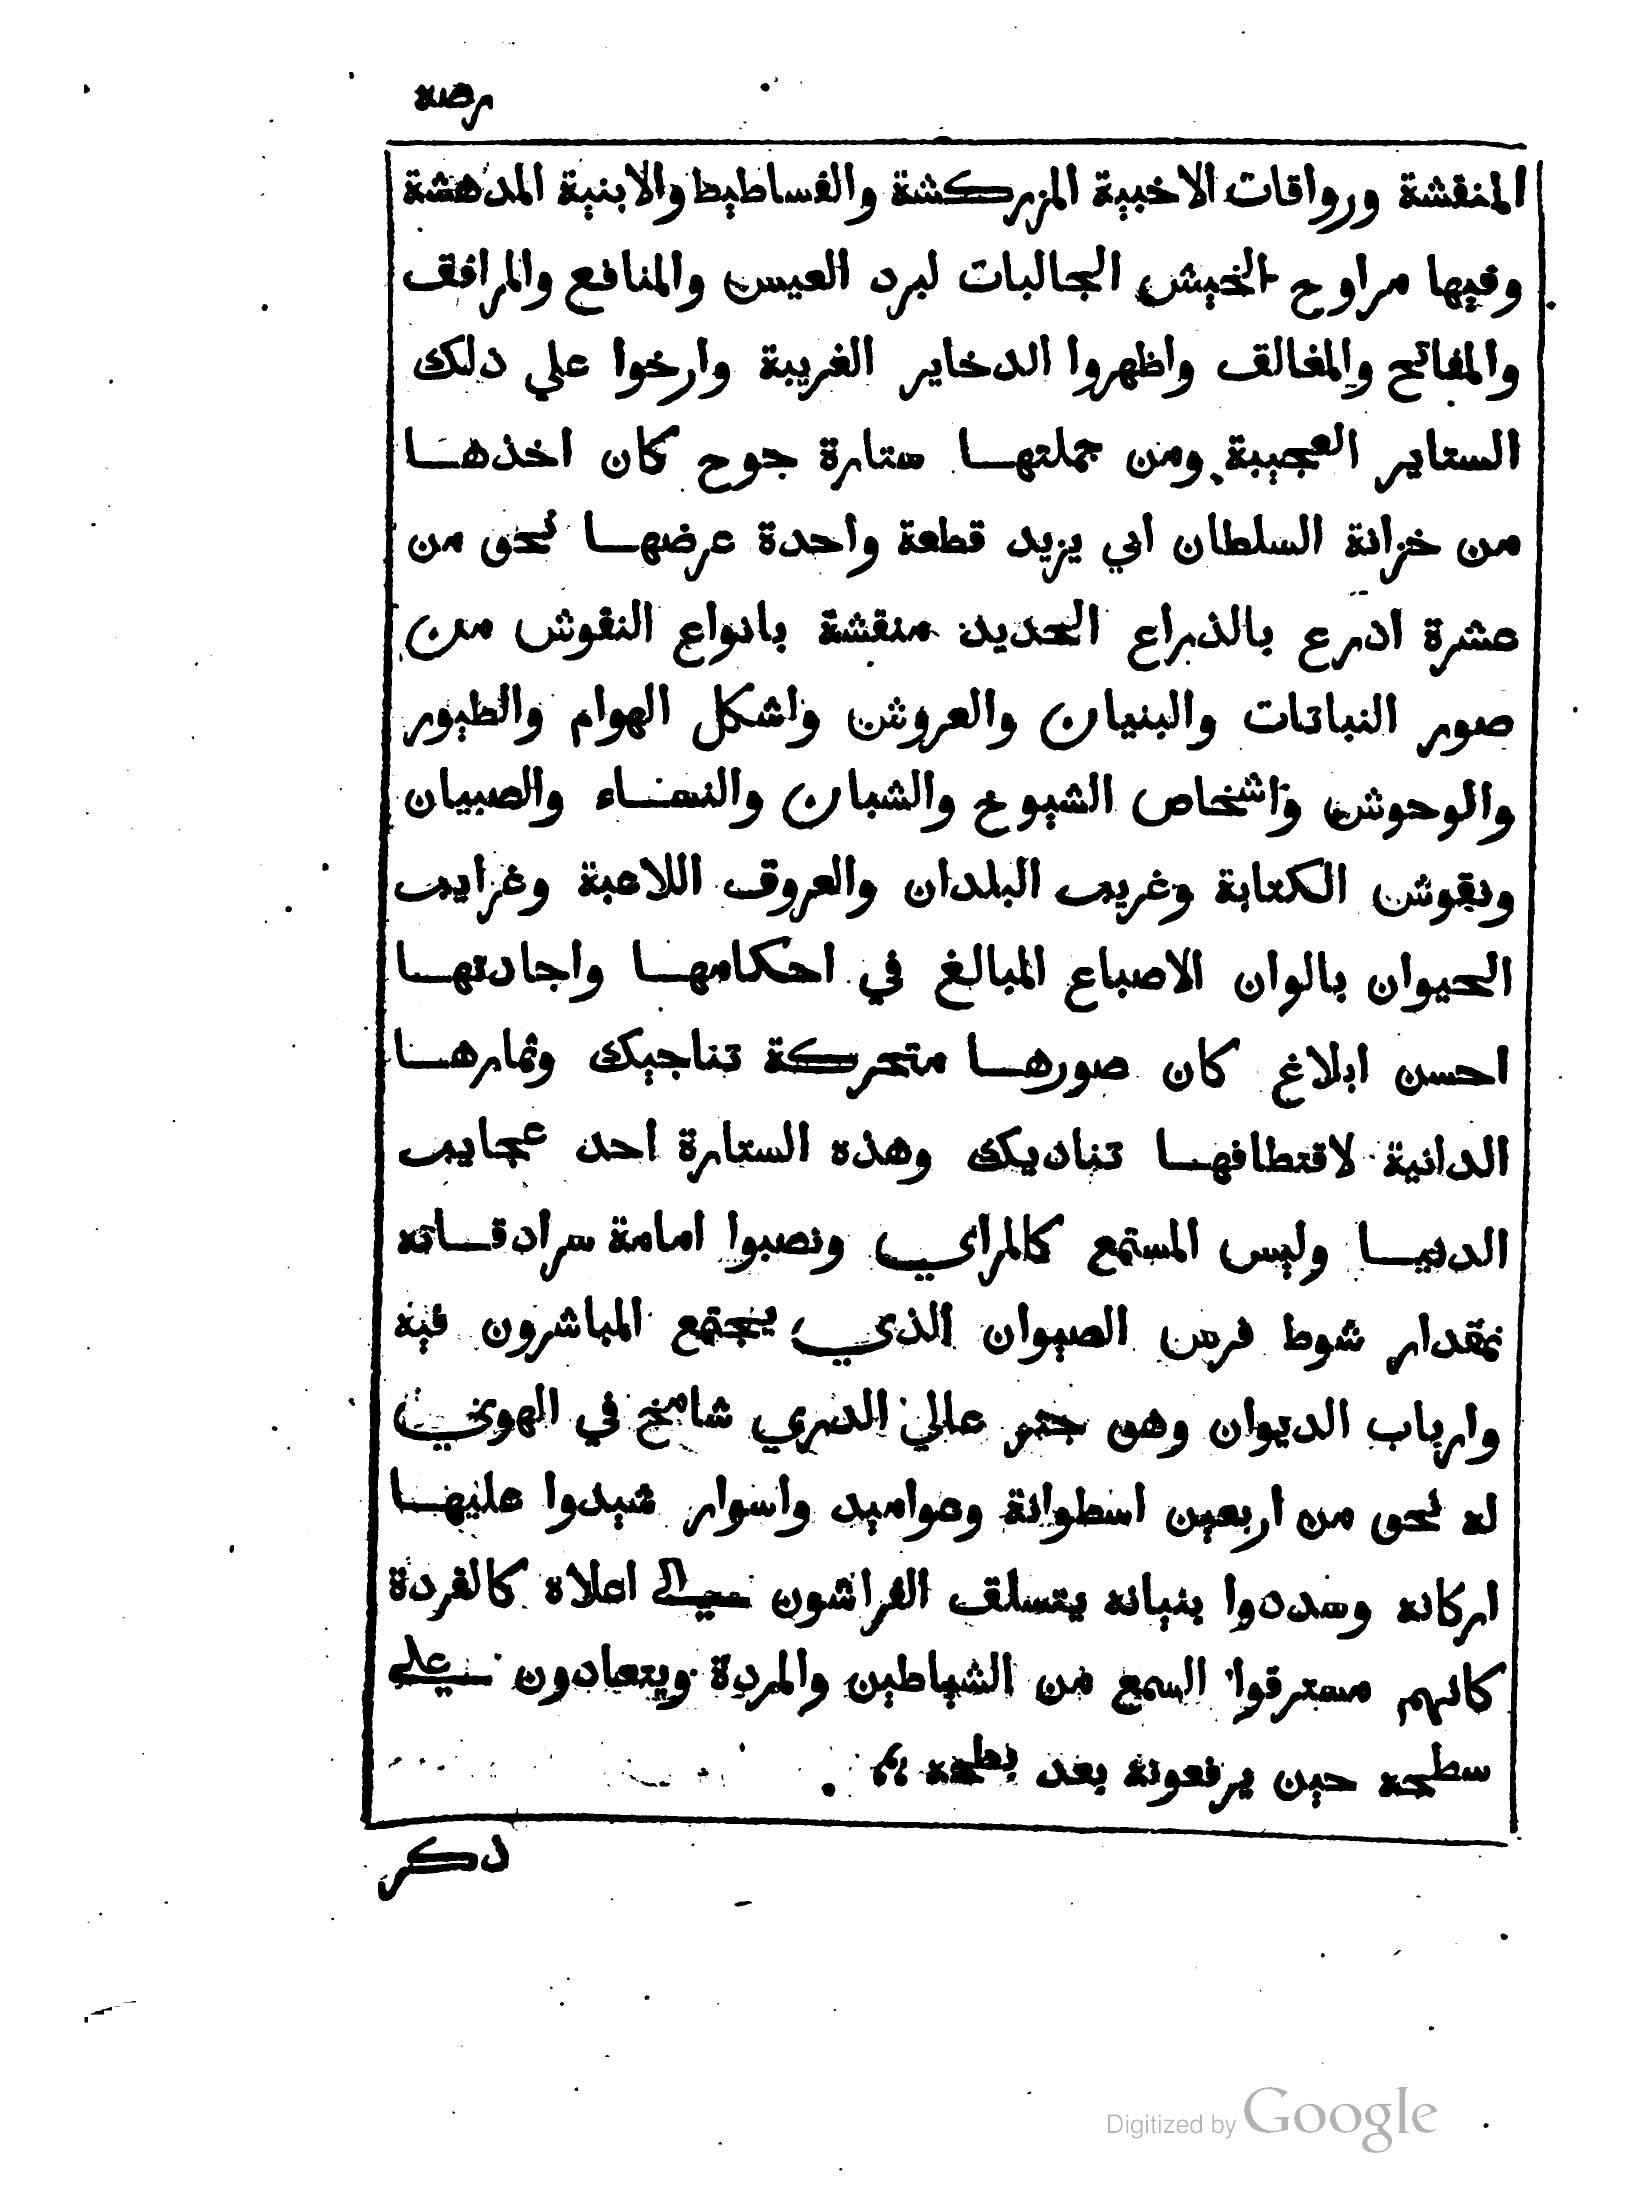 المنقشة ورواقات الاخبية المزركشة والفساطيط والابنية المدهشة
وفيها مراوح الخيش الجالبات لبرد العيس والمنافع والمرافق
والمفاتح والمغالق واظهروا الدخاير الغريبة وارخوا علي دلك
الستاير العجيبة ومن جملتها ستارة جوح كان اخذها
من خزانة السلطان ابي يزيد قطعة واحدة عرضها نحو من
عشرة ادرع بالذراع الحديد منقشة بانواع النقوش من
صور النباتات والبنيان والعروش واشكل الهوام والطيور
والوحوش واشخاص الشيوخ والشبان والنساء والصبيان
ونقوش الكتابة وغريب البلدان والعروق اللاعبة وغرايب
الحيوان بالوان الاصباغ المبالغ في احكامها واجادتها
احسن ابلاغ كان صورها متحركة تناجيك وثمارها
الدانية لاقتطافها تناديك وهذه الستارة احد عجايب
الدنيا وليس المستمع كالمراي ونصبوا امامة سرادقاته
بمقدار شوط فرس الصيوان الذي يجتمع المباشرون فيه
وارباب الديوان وهو جتر عالي الدري شامخ في الهوي
له نحو من اربعين اسطوانة وعواميد واسوار شيدوا عليها
اركانه وسددوا بنيانه يتسلق الفراشون الي اعلاه كالقردة
كانهم مسترقوا السمع من الشياطين والمردة ويتعادون علي
سطحه حين يرفعونة بعد بطحه
دكر
Digitized by Google